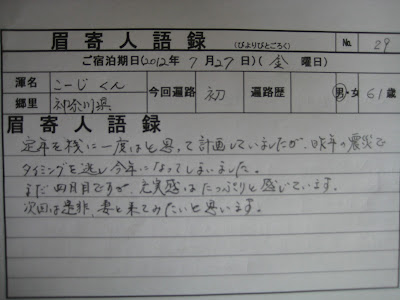 眉寄人語録 (びよりびとごろく) No. 29
ご宿泊期日(2012年 7月27日)(金 曜日)
渾名 こーじくん 今回遍路 初 遍路歴 男・女 61歳
郷里 神奈川県
眉寄人語録
定年を機に一度はと思って計画していましたが、昨年の震災で
タイミングを逃し今年になってしまいました。
まだ四月目ですが、充実感はたっぷりと感じています。
次回は是非、妻と来てみたいと思います。